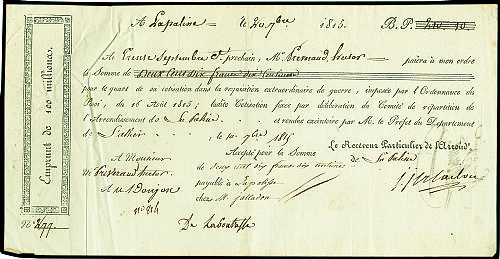 A Lapalisse le 20 7bre 1815. B. P. 210. 10
Au Trente Septembre prochain, Mr Preveraud hector paiera à mon ordre
la Somme de Deux Cent dix francs dix Centimes
pour le quart de sa cotisation dans la réquisition extraordinaire de guerre, imposée par l'Ordonnance du
Roi, du 16 Août 1815; ladite Cotisation fixée par délibération du Comité de répartition de
l'Arrondissement de la palisse et rendue exécutoire par M. le Préfet du Département
de l'allier le 10 7bre 1815
Le Receveur Particulier de l'Arrond.t
de La palisse
A Monsieur
M Preveraud hector
A au donjon
n° 914
Accepté pour la Somme
de deux cent dix francs dix centimes
payable à Lapalisse
chez M.
De
Emprunt de 100 millions.
N° 277